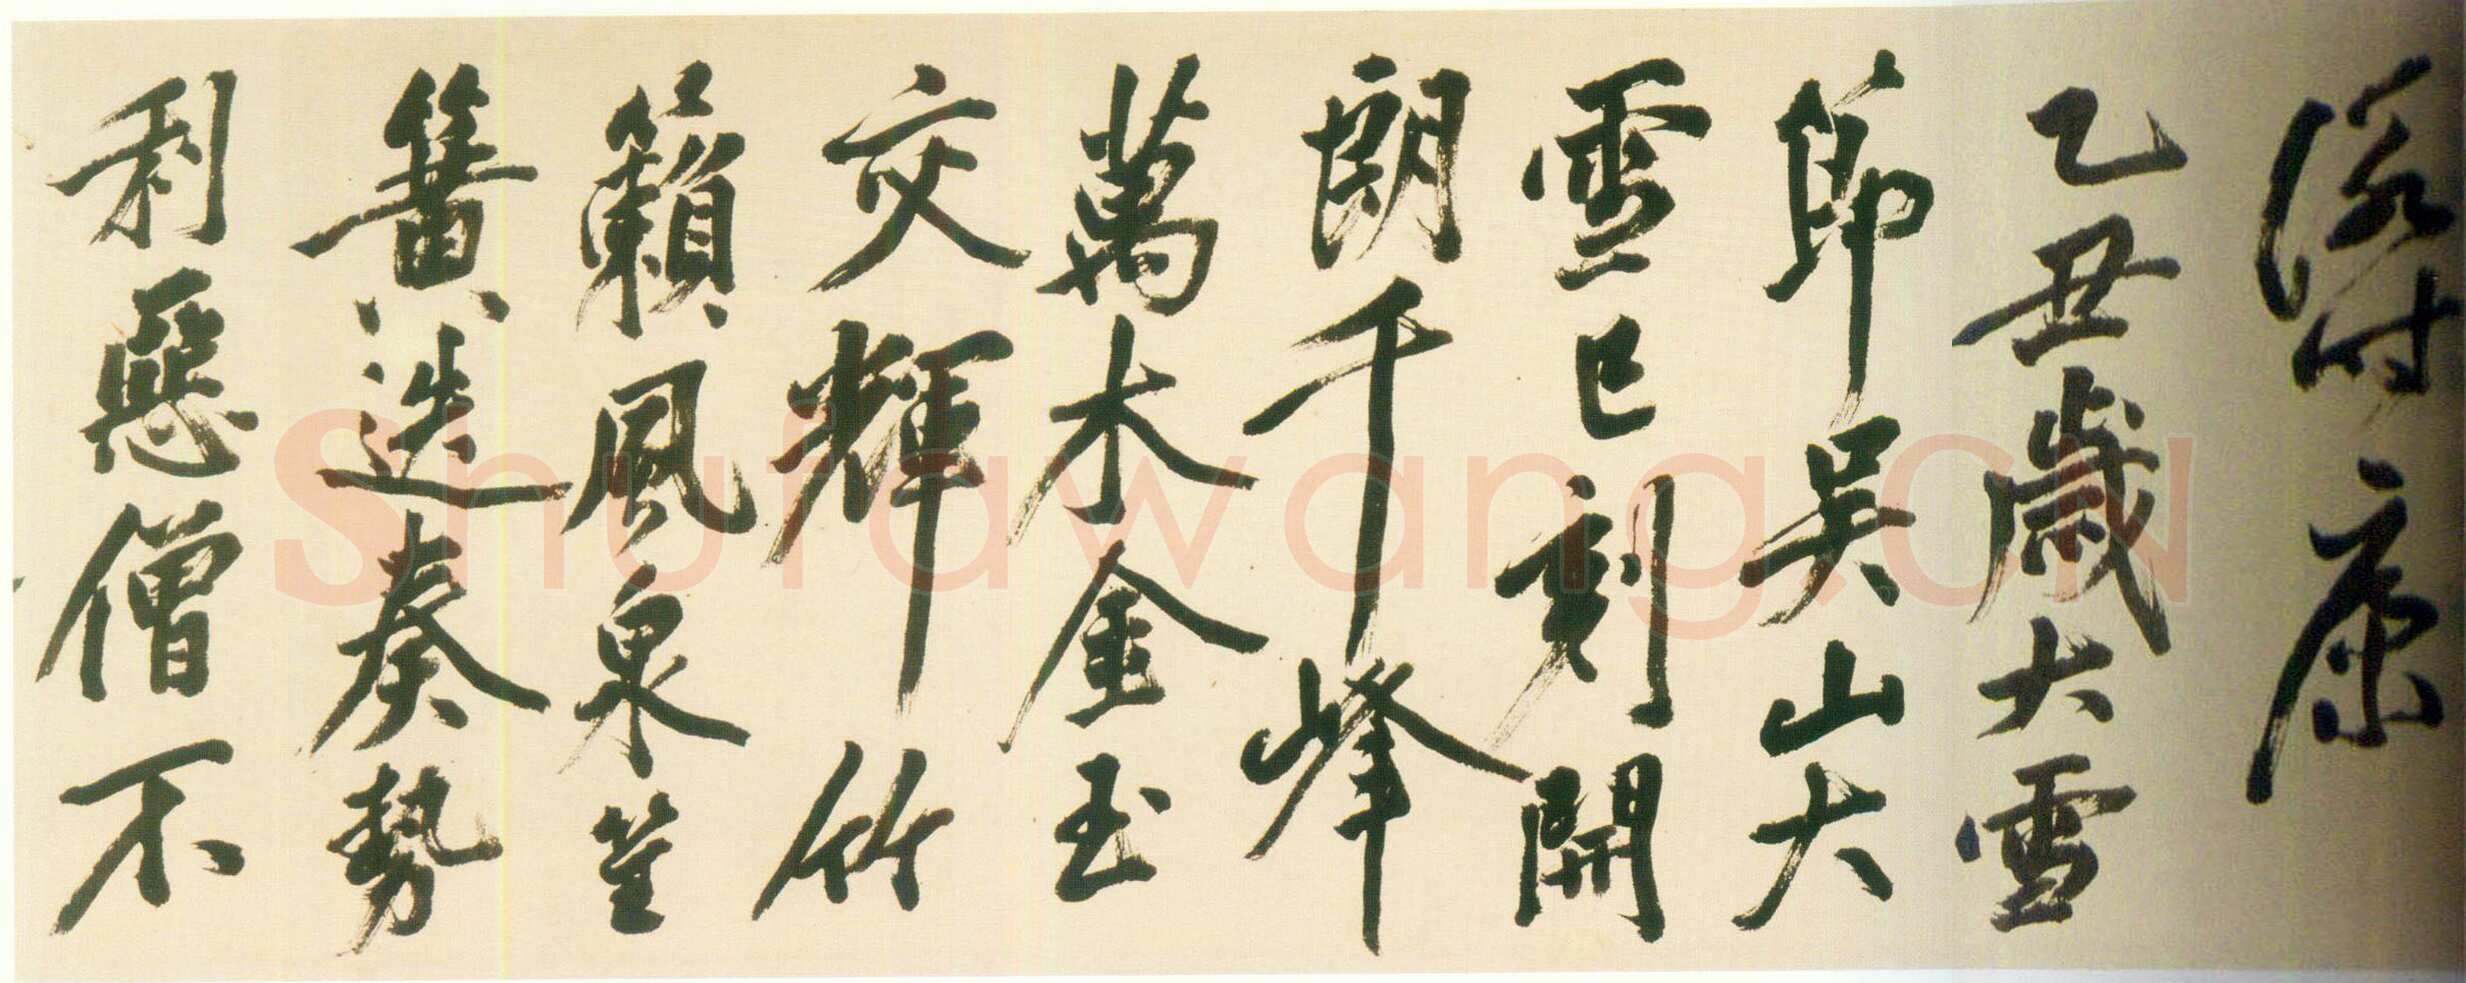 康
乙丑歲大雪
節吳山大
雪已刻開
朗千峰
萬木金玉
交輝竹
籟風泉笙
簧迭奏勢
利惡僧不
Shufawang.CN